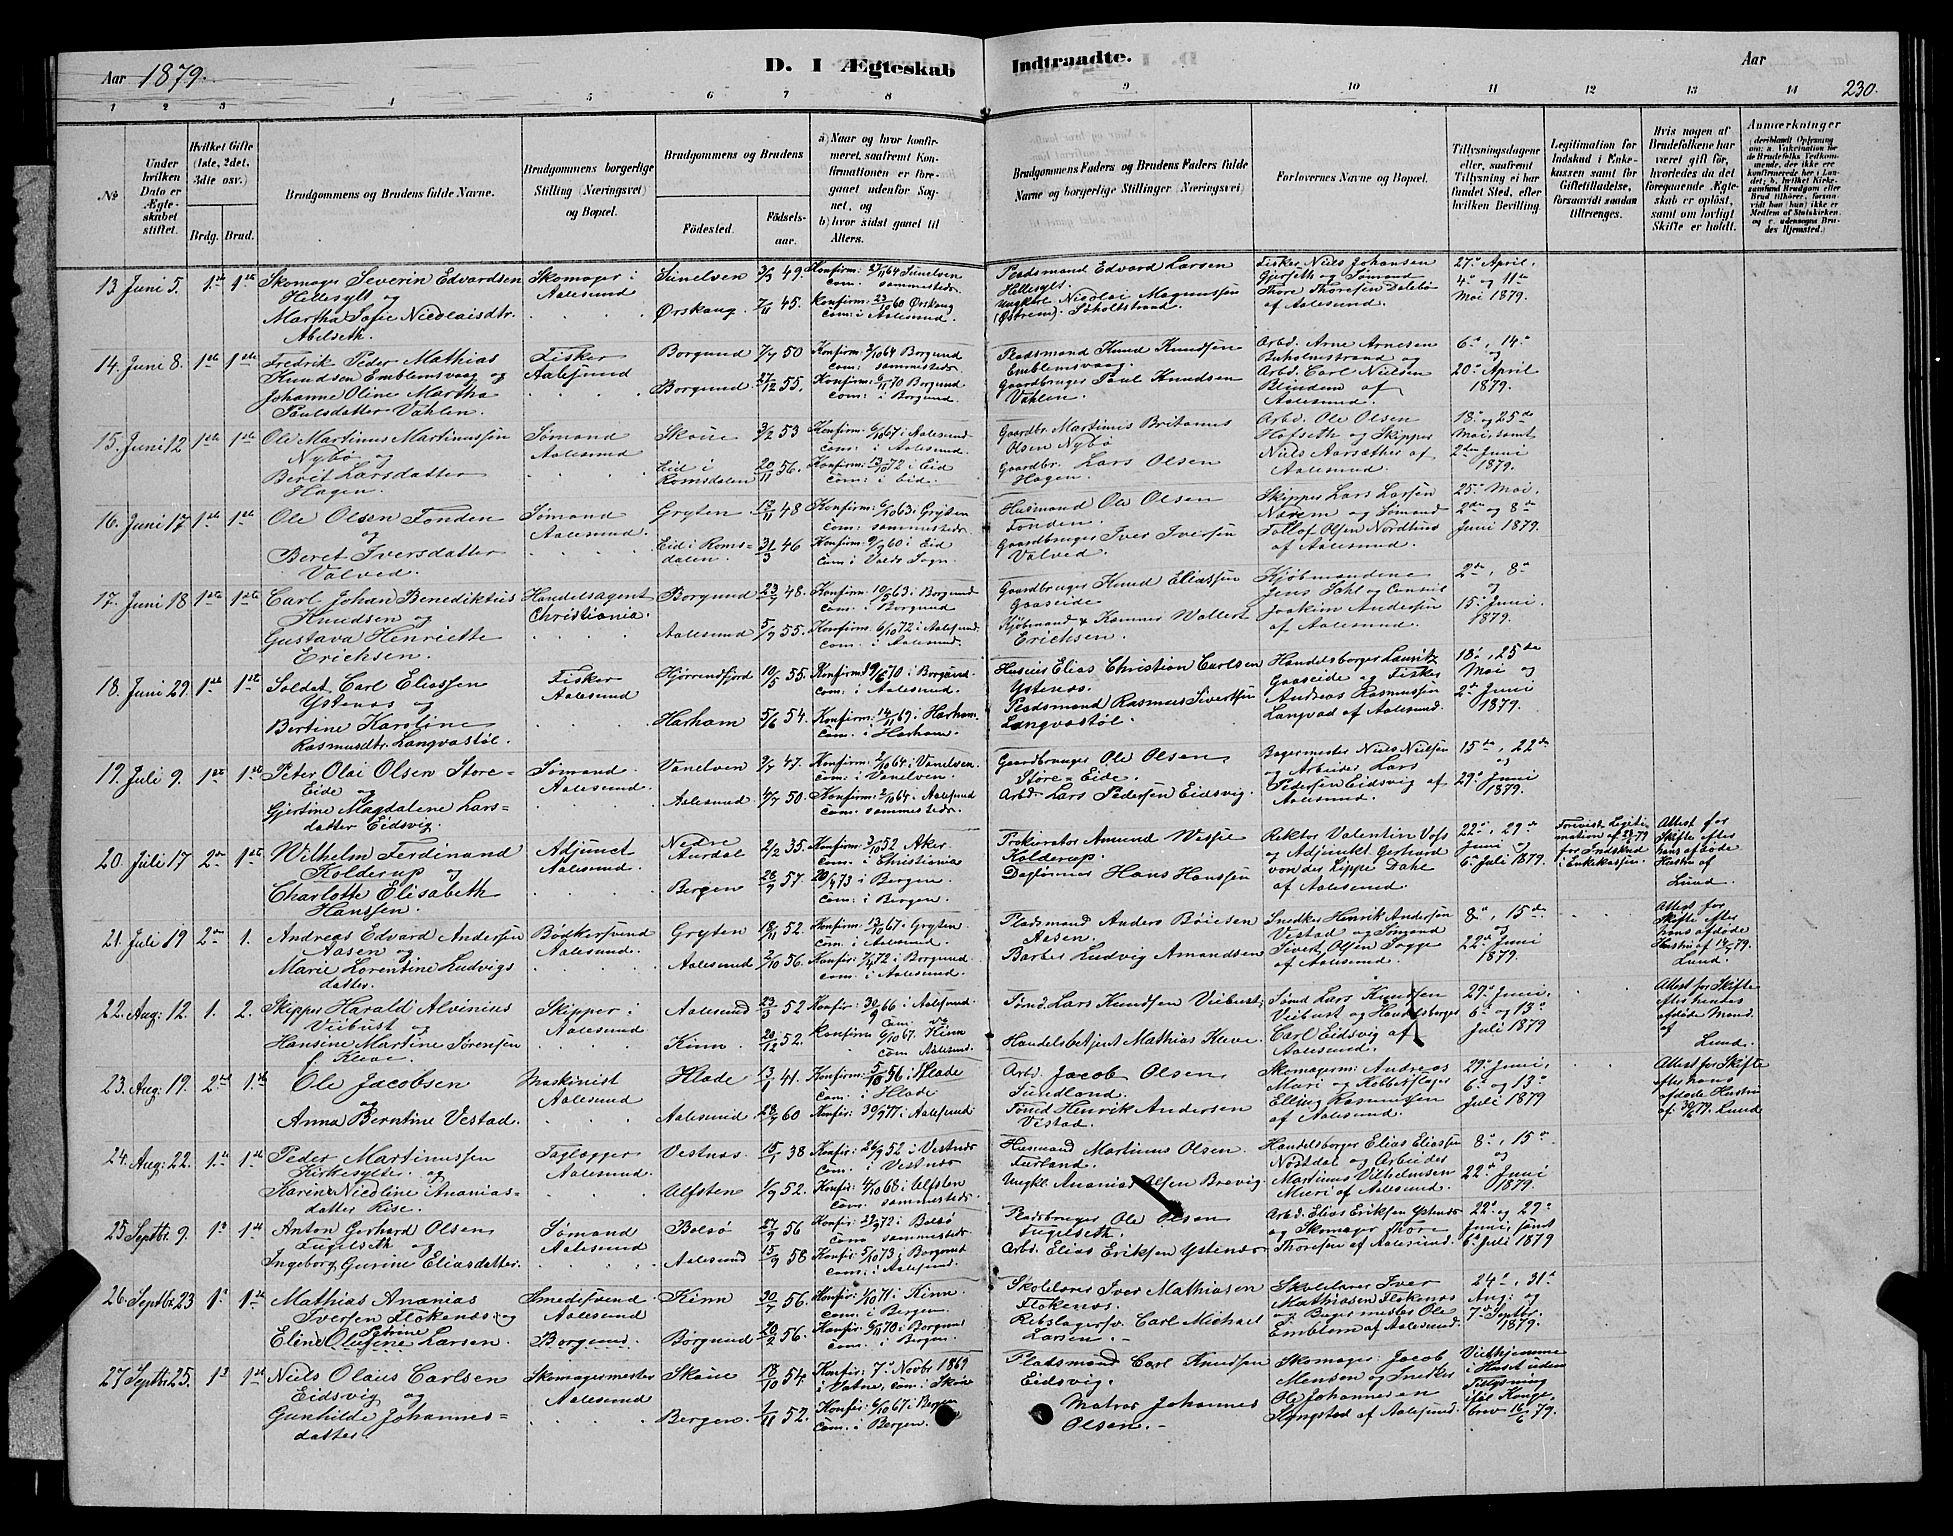 Aar 1879.
D. I Ægteskab Indtraadte.
Aar
230.
1 2 3 4 5 6 7 8 9 10 11 12 13 14
№
Under hvilken Dato er Ægteskabet stiftet.
Hvilket Gifte (1ste, 2det, 3die osv.)
Brdg. Brud.
Brudgommens og Brudens fulde Navne.
Brudgommens borgerlige Stilling (Næringsvei) og Bopæl.
Brudgommens og Brudens
Födested.
Födselsaar.
a) Naar og hvor konfirmeret, saafremt Konfirmationen er foregaaet udenfor Sognet, og
b) hvor sidst gaaet til Alters.
Brudgommens Faders og Brudens Faders fulde Navne og borgerlige Stillinger (Næringsvei)
Forlovernes Navne og Bopæl.
Tillysningsdagene eller, saafremt Tillysning ei har fundet Sted, efter hvilken Bevilling
Legitimation for Indskud i Enkekassen samt for Giftetilladelse, forsaavidt saadan tiltrænges.
Hvis nogen af Brudefolkene har været gift før, hvorledes da det foregaaende Ægteskab er opløst, samt om lovligt Skifte er holdt.
Anmærkninger
13 Juni 5. 1ste 1ste
Skomager Severin Edvardsen
Hellesylt og
Martha Sofie Nicolaisdtr.
Abelseth.
Skomager i
Aalesund
Sunelven 49.
Ørskoug 7/11 45.
Konfirm: 64 Sunelven
com: sammesteds.
Konfirm: 60 Ørskoug
com: i Aalesund.
Pladsmand Edvard Larsen
Hellesylt.
Ungkarl Nicolai Magnussen
Søholtstrand.
Fisker Niels Johansen
Gjerseth og Sømand
Thore Thoresen Dalebø
af Aalesund.
27de April,
4de og 11te
Mai 1879.
14. Juni 8. 1ste 1ste
Fredrik Peder Mathias
Knudsen Emblemsvaag og
Johanne Oline Martha
Paulsdatter Vahlen.
Fisker
Aalesund
Borgund 7/7 50
Borgund 27/12 55.
Konfirm: 64 Borgund
com: sammesteds.
Konfirm: 6/11 70 Borgund
com: i Borgund.
Pladsmand Knud Knudsen
Emblemsvaag.
Gaardbruger Paul Knudsen
Vahlen.
Arbd. Arne Arnesen
Buholmstrand og
Arbd. Carl Nielsen
Blindem af
Aalesund.
6te, 14de
og
20de April
1879.
15. Juni 12 1ste 1ste
Ole Martinus Martinussen
Nybø og
Beret Larsdatter
Hagen.
Sømand
Aalesund
Skoue 3/2 53
Eid i
Romsdalen 20/11 56.
Konfirm: 6/10 67 i Aalesund
com: i Aalesund.
Konfirm: 13/10 72 i Eid
com: i Eid.
Gaardbr. Martinus Britanus
Olsen Nybø
Gaardbr. Lars Olsen
Hagen.
Arbd. Ole Olsen
Hofseth og Skipper
Niels Aarsæther af
Aalesund.
18de og 25de
Mai samt
2den Juni
1879.
16. Juni 17 1ste 1ste
Ole Olsen Fonden
og
Beret Iversdatter
Valved.
Sømand
Aalesund.
Gryten 17/11 48
Eid i Romsdalen. 31/3 46
Konfirm: 63 i Gryten
com: sammesteds
Konfirm: 60 i Eid
com: i Volds Sogn.
Husmand Ole Olsen
Fonden.
Gaardbruger Iver Iversen
Valved.
Skipper Lars Larsen
Narem og Sømand
Tollof Olsen Nordhus
af Aalesund.
25de Mai,
2den og 8de
Juni 1879.
17. Juni 18 1ste 1ste
Carl Johan Benediktus
Knudsen og
Gustava Henriette
Erichsen.
Handelsagent
Christiania.
Borgund 23/7 48.
Aalesund 5/9 55.
Konfirm: 63 i Borgund
com: i Borgund
Konfirm: 6/10 72 i Aalesund
com: i Aalesund.
Gaardbruger Knud Eliassen
Gaaseide
Kjøbmand & Kæmner Wollert
Erichsen.
Kjøbmændene
Jens Sahl og Consul
Joakim Andersen
af Aalesund.
2den, 8de
og
15de Juni
1879.
18. Juni 29. 1ste 1ste
Soldat Carl Eliassen
Ystenæs og
Bertine Karoline
Rasmusdtr. Langvastøl.
Fisker
Aalesund
Hjörrendfjord 10/5 55.
Harham 5/6 54.
Konfirm: 70 i Borgund
com: i Aalesund.
Konfirm: 14/11 69 i Harham.
com: i Harham.
Huseier Elias Christian Carlsen
Ystenæs.
Pladsmand Rasmus Sivertsen
Langvastøl.
Handelsborger Lauritz
Gaaseide og Fisker
Andreas Rasmussen
Langvad af Aalesund.
18de, 25de
Mai og
2den Juni
1879.
19. Juli 9. 1ste 1ste
Peter Olai Olsen Store-
Eide og
Gjertine Magdalene Lars-
datter Eidsvig.
Sømand
Aalesund.
Vanelven 47.
Aalesund 4/7 50.
Konfirm: 64 i Vanelven.
com: i Vanelven.
Konfirm: 2/10 64 i Aalesund
com: sammesteds.
Gaardbruger Ole Olsen
Store-Eide.
Arbd. Lars Pedersen Eidsvig.
Bagermester Niels Nielsen
og Arbeider Lars
Pedersen Eidsvig af
Aalesund.
15de, 22de
og
29de Juni
1879.
20. Juli 17 2den 1ste
Wilhelm Ferdinand
Kolderup og
Charlotte Elisabeth
Hanssen.
Adjunct
Aalesund.
Nedre
Aurdal 2/2 35.
Bergen 26/9 57.
Konfirm: 3/10 52 Aker
com: i Christiania
20/4 73 i Bergen.
com: i Bergen.
Prokurator Amund Wessie
Kolderup.
Dagfører Hans Hanssen
Rektor Valentin Voss
og Adjunkt Gerhard
von der Lippe Dahl
af Aalesund.
22de, 29de
Juni og
6te Juli 1879.
Forevist Legitimation af 79
for Indskud
i Enkekassen.
Attest for
Skifte efter
hans afdöde
Hustru af
Lund.
21. Juli 19 2den 1.
Andreas Edvard Andersen
Aasen og
Marie Lorentine Ludvigs
datter.
Bødkersvend
Aalesund.
Gryten 18/11 52.
Aalesund 2/10 56.
Konfir: 13/10 67 Gryten.
com: i Aalesund.
Konfir: 72 i Borgund
com: i Aalesund.
Pladsmand Anders Böiesen
Aasen.
Barber Ludvig Amundsen
Snedker Henrik Andersen
Vestad og Sømand
Sivert Olsen Sogge
af Aalesund.
8de, 15de
og
22de Juni
1879.
Attest for
Skifte efter
hans afdöde
Hustru af 79.
Lund.
22. Aug: 12. 1. 2.
Skipper Harald Alvinius
Viibust og
Hansine Martine Sørensen
f. Kleve.
Skipper i
Aalesund
Aalesund 23/3 52
Kinn. 20/12 52.
Konfir: 30/9 66 i Aalesund
com: do
Konfirm: 6/10 67. Kinn
com Aalesund.
Sømd. Lars Knudsen Viibust;
Handelsbetjent Mathias Kleve.
Sømd Lars Knudsen
Viibust og Handelsborger
Carl Eidsvig af
Aalesund.
29de Juni,
6te og 13de
Juli 1879
Attest for Skifte
efter hendes
afdøde Mand.
af
Lund.
23. Aug: 19. 2den 1ste
Ole Jacobsen
og
Anna Berntine Vestad.
Maskinist
Aalesund
Hlade 13/9 41.
Aalesund. 23/7 60
Konfirm: 5/10 56 i Hlade
com: i Hlade
Konfir: 30/9 77 i Aalesund
Arbd. Jacob Olsen
Sundland.
Tömd Henrik Andersen
Vistad.
Skomagerm: Andreas
Muri og Kobberslager
Elling Rasmussen
af Aalesund.
29de Juni,
6te og 13de
Juli 1879
Attest for Skifte
efter hans
afdøde Hustru
af: 79. Lund
24. Aug: 22. 1ste 1ste
Peder Martinussen
Kirkesylte og
Karine Nicoline Ananias-
datter Rise.
Taglægger
Aalesund.
Vestnæs 15/1 38
Ulfsten 1/9 52.
Konfir: 26/9 52 i Vestnæs
com: i Vestnæs
Konfir: 4/10 68 i Ulfsten
sammesteds.
Husmand Martinus Olsen
Furland.
Ungkl. Ananias Olsen Brevig.
Handelsborger Elias Eliassen
Nøstdal og Arbeider
Martinus Vilhelmsen
Muri af Aalesund.
8de, 15de
og
22de Juni
1879
25 Septbr. 9. 1ste 1ste
Anton Gerhard Olsen
Fugelseth og
Ingeborg Gurine Eliasdatter.
Sømand
Aalesund
Bolsø 27/9 56
Aalesund 15/9 58
Konfir: 72 i Bolsø
com: sammesteds
Konfir: 5/10 73 i Borgund
com: i Aalesund.
Pladsbruger Ole Olsen
Fugelseth.
Arbd. Elias Eriksen Ystenæs
Arbd. Elias Eriksen Ystenæs
og Skomager Thore
Thoresen af Aalesund.
22de og 29de
Juni, samt
6te Juli 1879
26. Septbr. 23 1ste 1ste
Mathias Ananias
Iversen Flokenæs. og
Eline Olufine Petrine Larsen.
Smedesvend
Aalesund
Borgund.
Kinn 30/7 56.
Borgund 20/2 56.
Konfir: 1/10 71. i Kinn.
com: i Bergen.
Konfir: 6/11 70 i Borgund
com: i Bergen.
Skolelærer Iver Mathiasen
Flokenæs.
Rebslagersv. Carl Michael
Larsen.
Skolelærer Iver
Mathiasen Flokenæs
og Bagermester Ole
Emblem af Aalesund.
24de, 31te
Aug: og
7de Septbr.
1879.
27 Septbr. 25. 1ste 1ste
Niels Olaus Carlsen
Eidsvig og
Gunhilde Johannes-
datter.
Skomagermester
Aalesund
Skoue 18/10 54.
Bergen 1/11 52.
Konfir: 7de Novbr 1869
i Vatne, com: i Skoue
Konfir: 6/10 67 i Bergen
com: i Bergen.
Pladsmand Carl Knudsen
Eidsvig.
Matros Johannes
Olsen.
Skomager Jacob
Monsen og Snedker
Johannesen
Slyngstad af Aalesund.
Viet hjemme
i Huset uden
Tillysning
iføl. Konge-
brev 16/6 79.